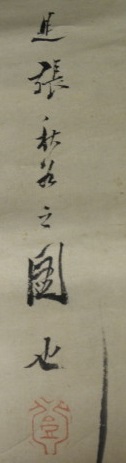 是張秋谷之圖也